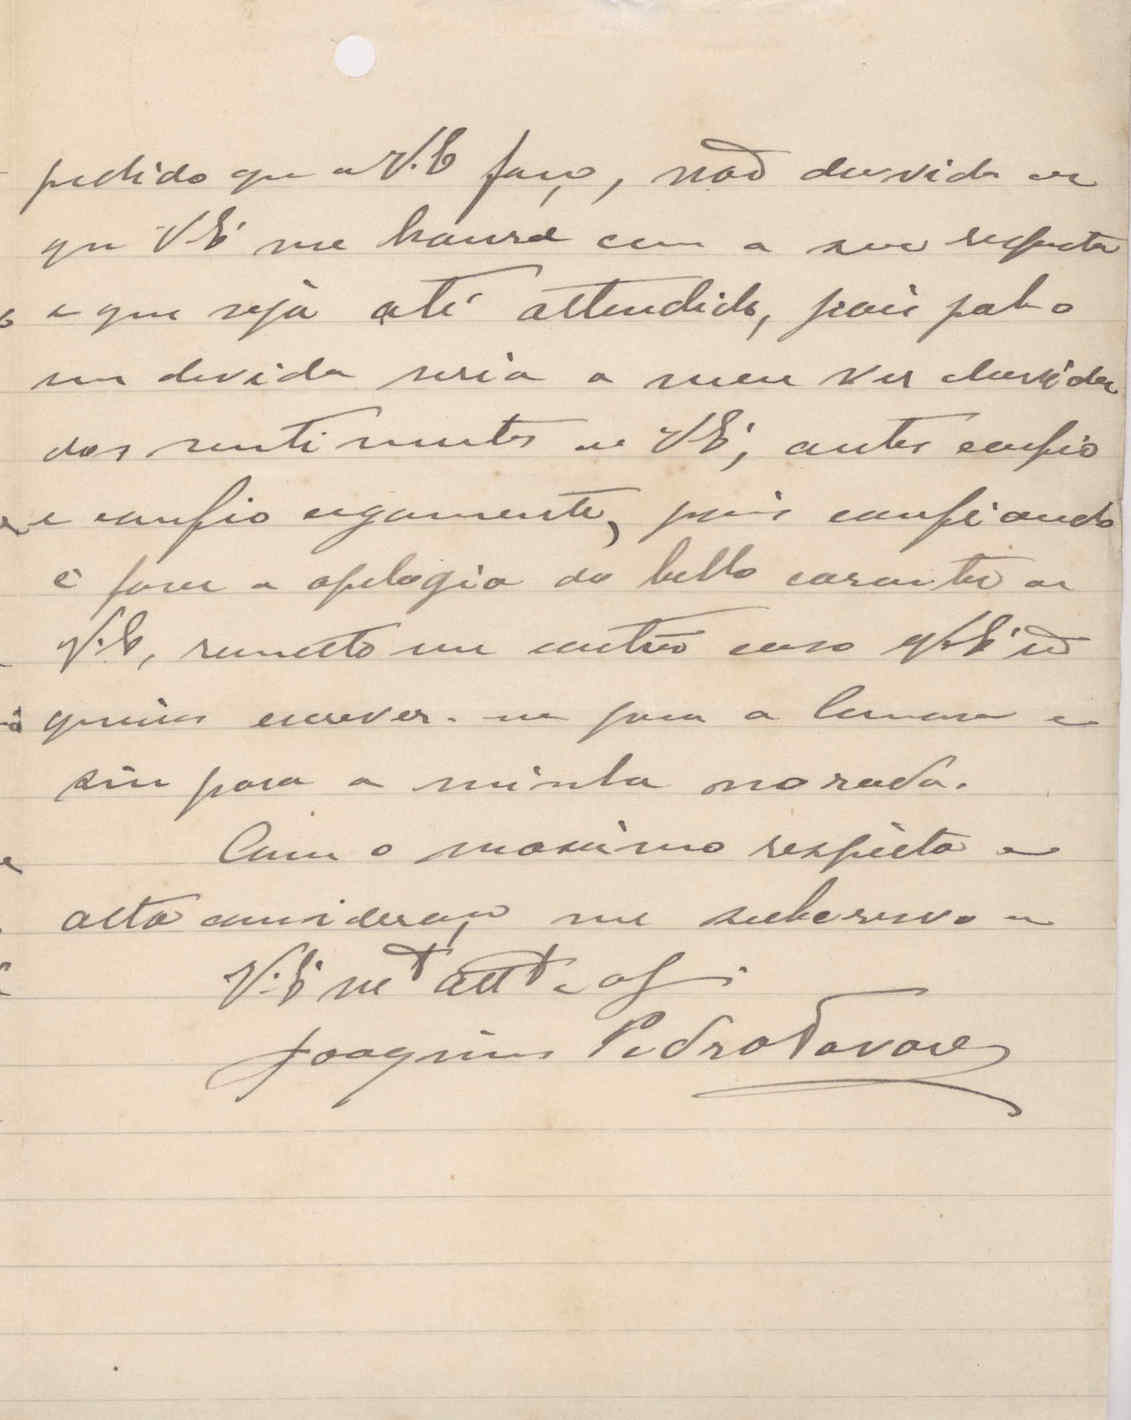 pedido que a V.E faço, não duvido de
que V.Eª me honrará com a sua resposta
e que seja até attendido, pois pol-o
em duvida seria a meu ver duvidar
dos sentimentos de V.Eª, antes confio
e confio cegamente, pois confiando
é fazer a apologia do bello caracter de
V.E, n'um outro caso V.Eª
queira escrever-me para a Camara e
sim para a minha morada.
Com o maximo respeito e
alta consideração me subscrevo
de V.Eª mtº attº e
Joaquim Pedro Tavares